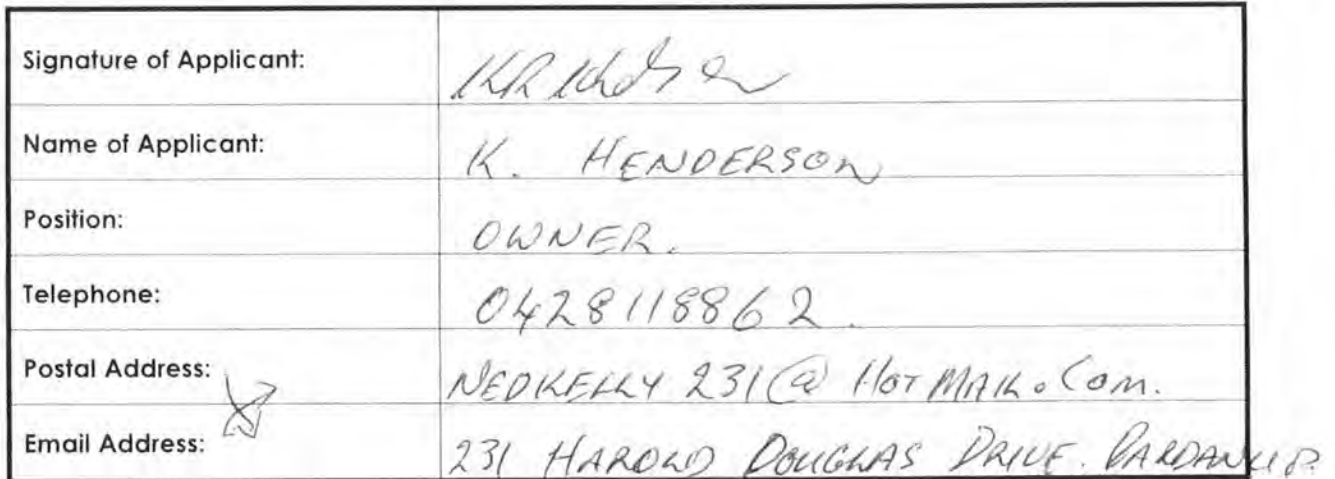 Signature of Applicant:
Name of Applicant: K. HENDERSON
Position: OWNER.
Telephone: 0428118862.
Postal Address: NEDKELLY 231@ HOTMAIL.COM.
Email Address: 231 HAROLD DOUGLAS DRIVE. DARDANUP.